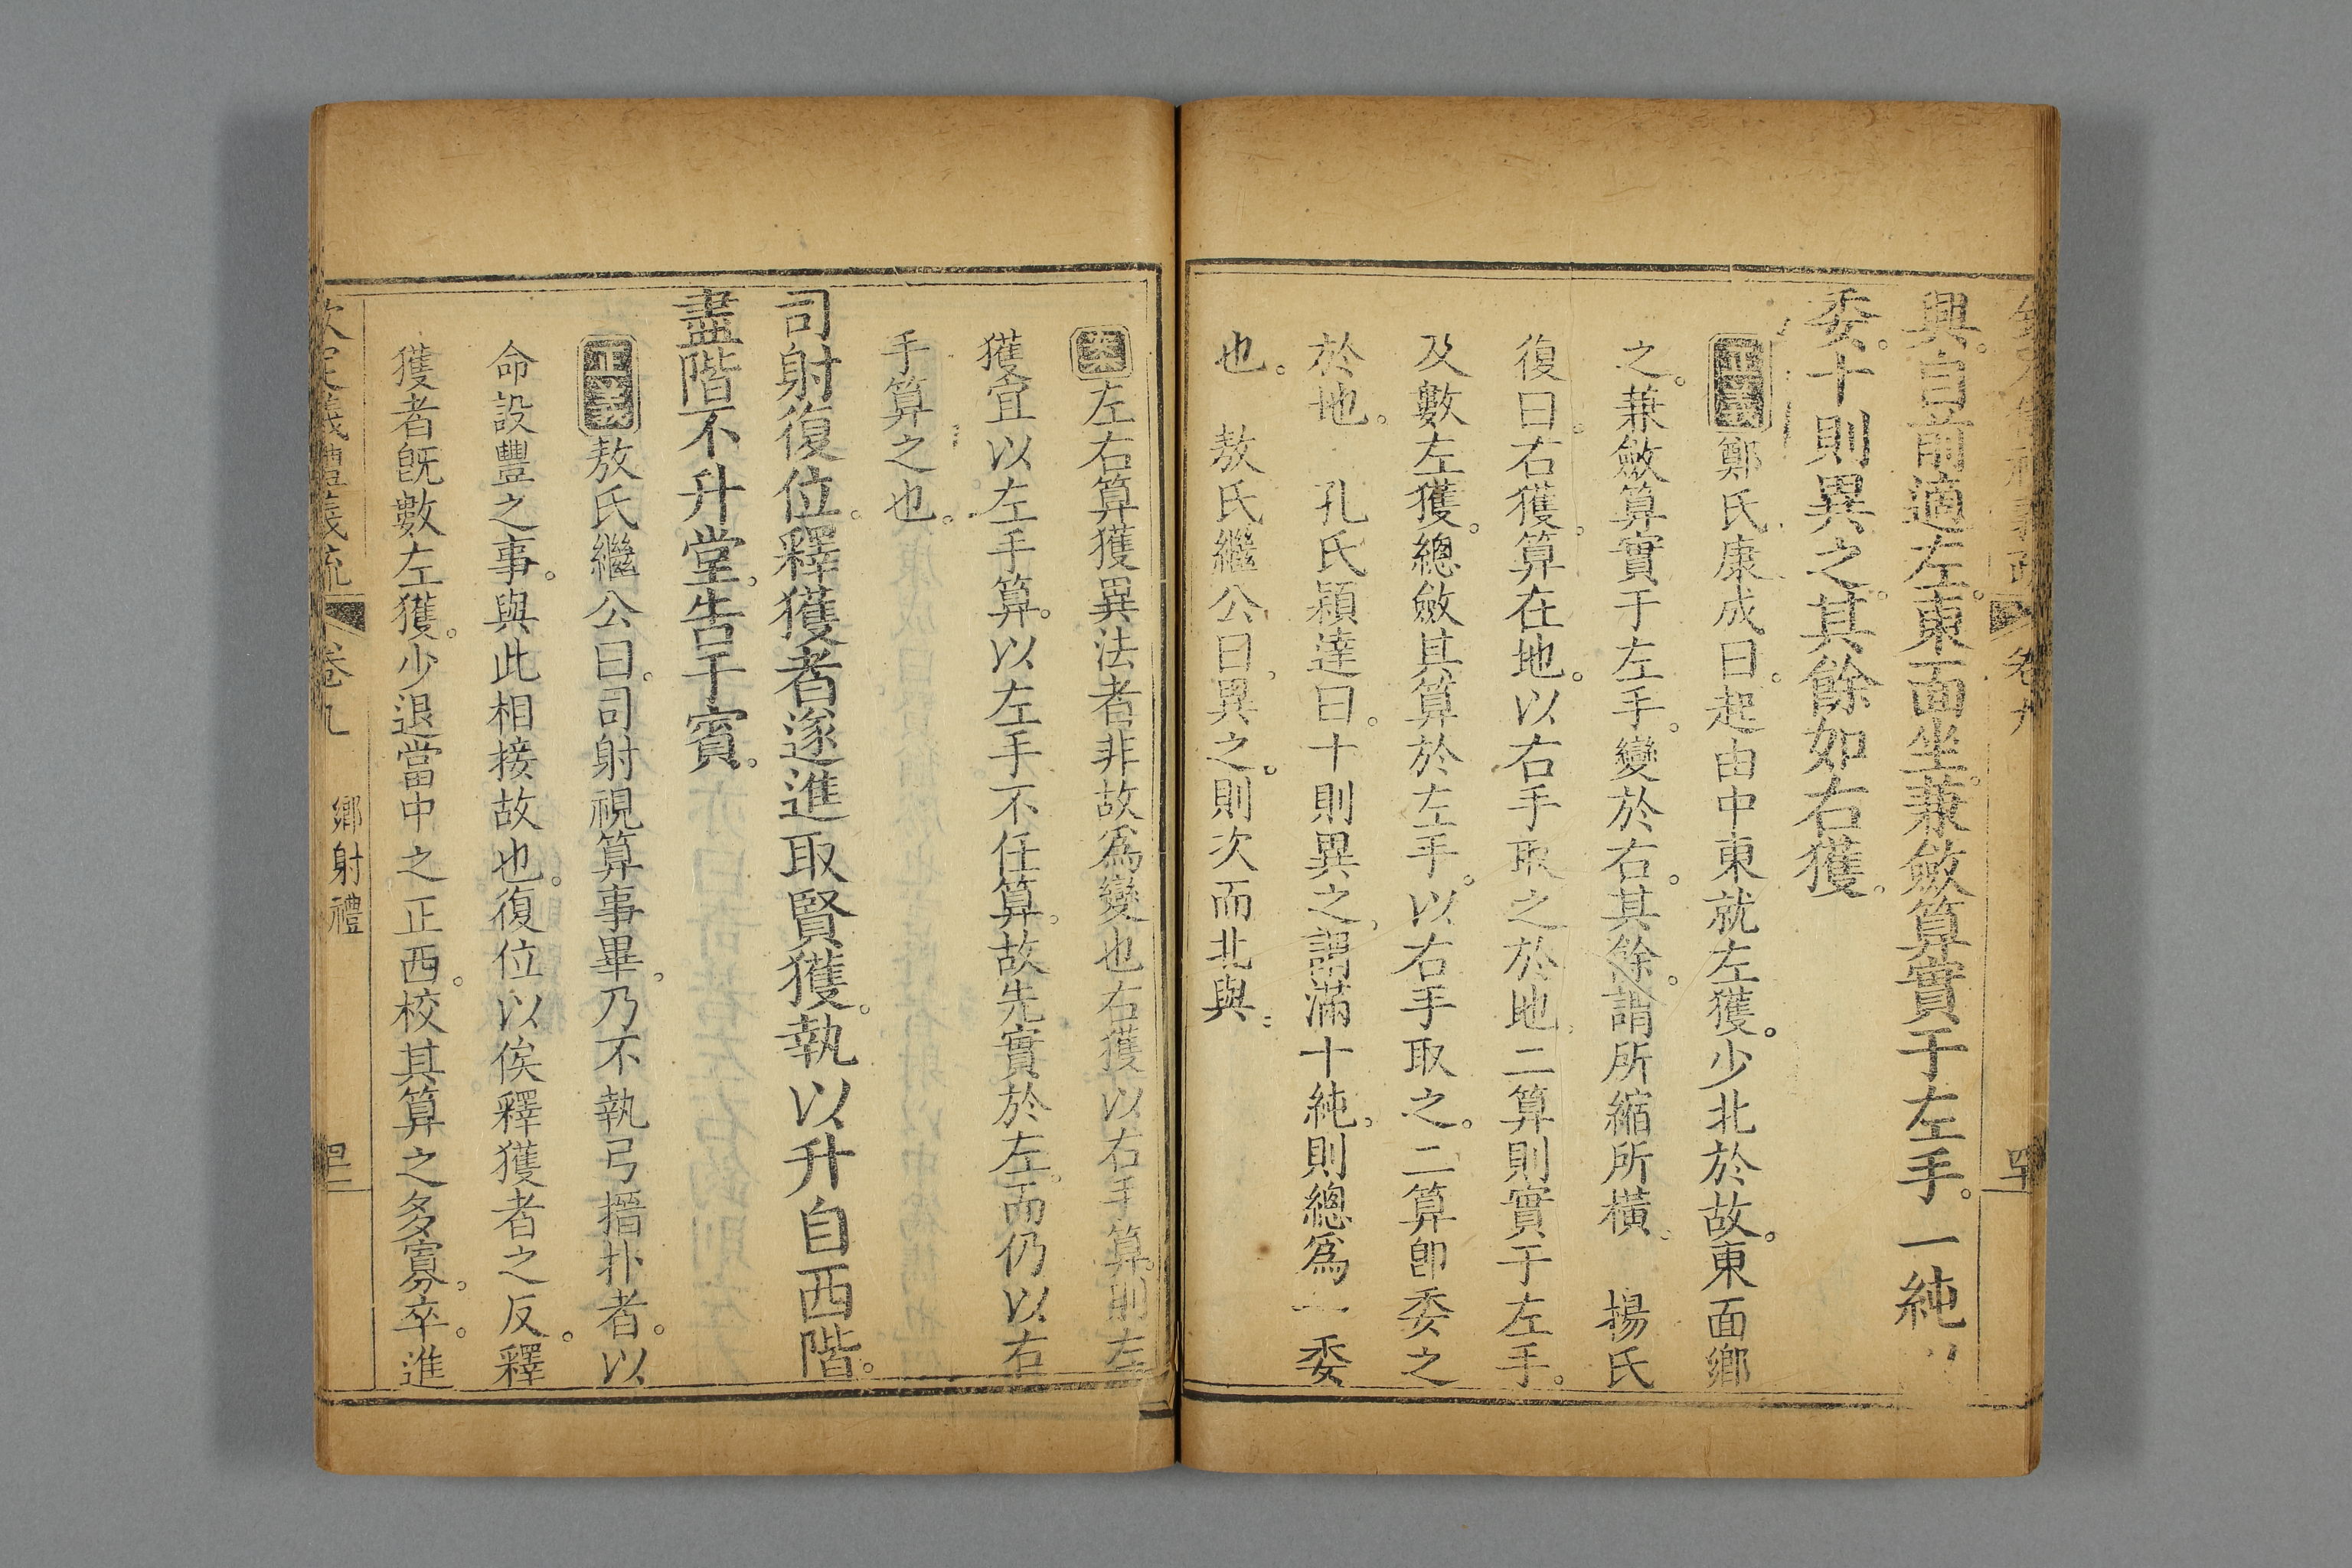 興。自前適左。東面坐。兼斂算實于左手。一純以
委。十則異之。其餘如右獲。
正義鄭氏康成曰。起由中東就左獲。少北於故。東面鄉
之。兼斂算實于左手。變於右。其餘。謂所縮所橫。 楊氏
復曰。右獲。算在地。以右手取之於地。二算則實于左手。
及數左獲。總斂其算於左手。以右手取之。二算卽委之
於地。 孔氏穎達曰。十則異之。謂滿十純。則總爲一委
也。 敖氏繼公曰。異之。則次而北與。
案左右算獲異法者非故爲變也右獲以右手算。則左
獲宜以左手算。以左手不任算。故先實於左。而仍以右
手算之也。
司射復位。釋獲者遂進取賢獲。執以升自西階。
盡階不升堂。告于賓。
正義敖氏繼公曰。司射視算事畢。乃不執弓搢扑者。以
命設豐之事。與此相接故也。復位以俟釋獲者之反。釋
獲者旣數左獲。少退當中之正西。校其算之多寡。卒。進
欽定義禮義疏 卷九 鄉射禮